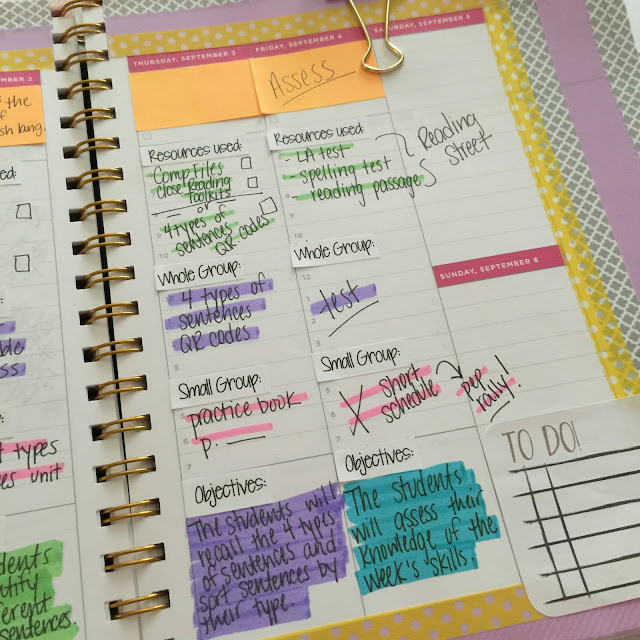 MBER 2
the
of
sh lang.
ed:
ble
ss
types
es unit
dents
tify
ferent
sentences.
THURSDAY, SEPTEMBER 3
Resources used:
Comp Files
close Reading
Toolkits
or
4 types of
sentences
QR codes
Whole Group:
4 types of
sentences
QR codes
Small Group:
practice book
p.
Objectives:
The students will
recall the 4 types
of sentences and
sort sentences by
their type.
FRIDAY, SEPTEMBER 4
Assess
Resources used:
- LA test
- spelling test
- reading passages
Reading
Street
Whole Group:
test
Small Group:
X short
schedule
pep
rally!
Objectives:
The students
will assess their
knowledge of the
week's skills.
SATURDAY, SEPTEMBER 5
SUNDAY, SEPTEMBER 6
TO DO!